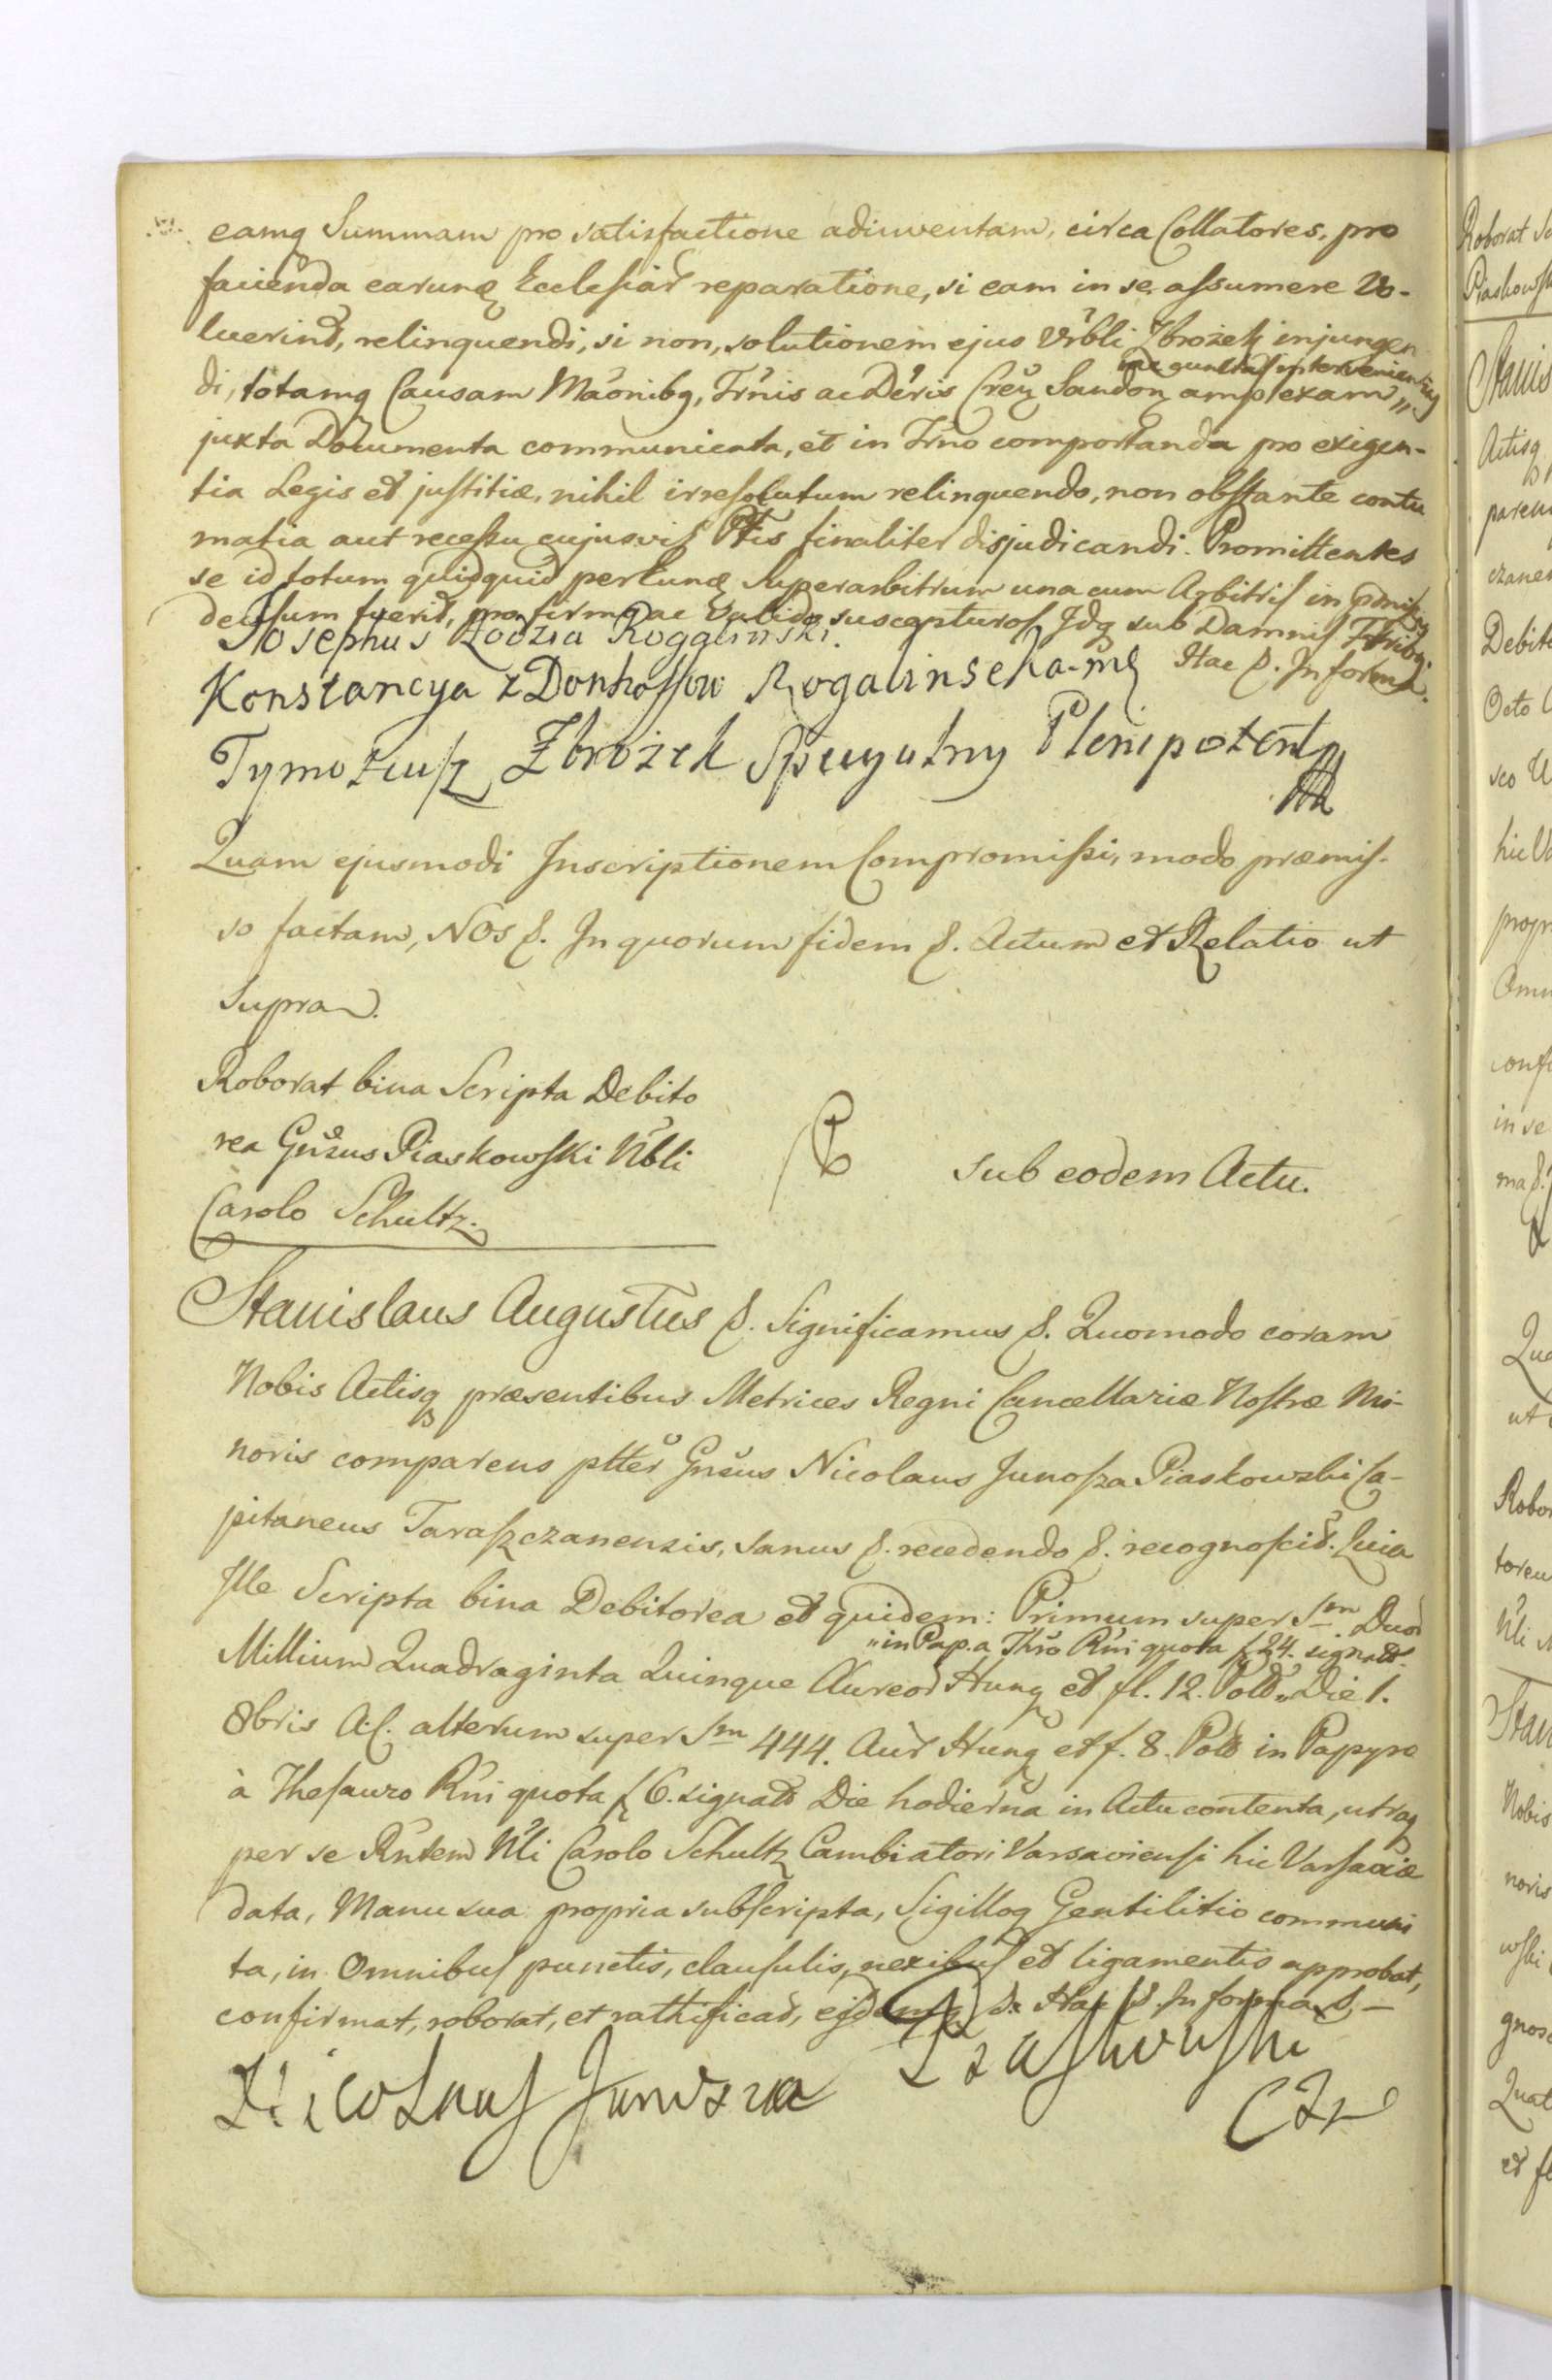 eamq Summam pro satisfactione adinventam, circa Collatores, pro
facienda earunq Ecclesiar reparatione, si eam in se assumere vo-
luerint, relinquendi, si non, solutionem ejus Urbli Zbrożek injungen
di, totamq Causam Maonibq, Trnis ac Deris Creq amplexam„
juxta Documenta communicata, et in Trno comportanda pro exigen-
tia Legis et justitiæ, nihil irresolutum relinquendo, non obstante contu
matia aut recessu cujusvis Ptis finaliter disjudicandi. Promittentes
se id totum quidquid per Superarbitrum una cum Arbitris in
decisum fuerit, pro firmo ac valido suscepturos Idq sub Damnis
Hac &. In forma.
Josephus Łodzia Rogaliński.
Konstancya z Donhoffow Rogalinska mp
Tymoteusz Zbrożek Specyalny Plenipotent
Quam ejusmodi Inscriptionem Compromissi, modo præmis-
so factam, NOS &. In quorum fidem &. Actum et Relatio ut
Supra.
Roborat bina Scripta Debito
rea Gnsus Piaskowski Nbli
Carolo Schultz.
sub eodem Actu.
Stanislaus Augustus &. Significamus &. Quomodo coram
Nobis Actisq præsentibus Metrices Regni Cancellariæ Nostræ Mi-
noris comparens ptter Gnsus Nicolaus Junosza Piaskowski Ca-
pitaneus Taraszczanensis, sanus &. recedendo &. recognoscit. Quia
Ille Scripta bina Debitorea et quidem: Primum super Sm Duor
„in Pap. a Thro Rni quota f 24. signato.
Millium Quadraginta Quinque Aureor Hung et fl. 12. Pold„ Die 1.
8bris A.C. alterum super Sm 444. Aur Hung et f. 8. Poll in Papyro
à Thesauro Rni quota f 6. signato Die hodierna in Actu contenta, utraq
per se Rntem Nli Carolo Schultz Cambiatori Varsaviensi hic Varsaviæ
data, Manu sua propria subscripta, Sigilloq Gentilitio communi
ta, in Omnibus punctis, clausulis, nexibus et ligamentis approbat,
confirmat, roborat, et rathificat, Hac &. In forma &. –
Nicolaus Junosza Piaskowski